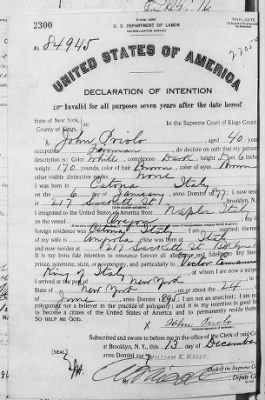 2300
U. S. DEPARTMENT OF LABOR
No. 84945
UNITED STATES OF AMERICA
DECLARATION OF INTENTION
Invalid for all purposes seven years after the date hereof
State of New York,
County of Kings,
In the Supreme Court of Kings County
I, John aged 40
occupation do declare on oath that my personal
description is: Color White, complexion Dark, height 5 feet 6
weight 170 pounds, color of hair Brown, color of eyes Brown
other visible distinctive marks None
I was born in Italy
on the 6 day of January, anno Domini 1877; I now reside
at 217 Sackett St, Brooklyn, N.
I emigrated to the United States of America from Naples
on the vessel
foreign residence was Italy
wife is she was born at Italy
and now resides at 217 Sackett St
It is my bona fide intention to renounce forever all allegiance
prince, potentate, state, or sovereignty, and particularly to Victor Emmanuel
King of Italy, of whom I am now a subject
I arrived at the port of New York
State of New York on or about the 24 day
of June, anno Domini 1895; I am not an anarchist; I am not a
polygamist nor a believer in the practice of polygamy; and it is my intention in good faith
to become a citizen of the United States of America and to permanently reside therein:
SO HELP ME GOD.
x John
Subscribed and sworn to before me in the office of the Clerk of said Court
at Brooklyn, N. Y., this 13 day of December
anno Domini
[SEAL]
WILLIAM E. KELLY,
Clerk of the Supreme